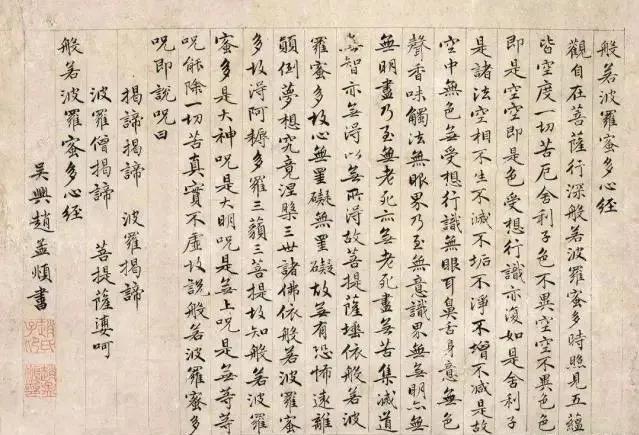 般若波羅蜜多心經
觀自在菩薩行深般若波羅蜜多時照見五蘊
皆空度一切苦厄舍利子色不異空空不異色色
即是空空即是色受想行識亦復如是舍利子
是諸法空相不生不滅不垢不淨不增不減是故
空中無色無受想行識無眼耳鼻舌身意無色
聲香味觸法無眼界乃至無意識界無無明亦無
無明盡乃至無老死亦無老死盡無苦集滅道
無智亦無得以無所得故菩提薩埵依般若波
羅蜜多故心無罣礙無罣礙故無有恐怖遠離
顛倒夢想究竟涅槃三世諸佛依般若波羅蜜
多故得阿耨多羅三藐三菩提故知般若波羅
蜜多是大神咒是大明咒是無上咒是無等等
咒能除一切苦真實不虛故說般若波羅蜜多
咒即說咒曰
揭諦揭諦 波羅揭諦
波羅僧揭諦 菩提薩婆呵
般若波羅蜜多心經
吳興趙孟頫書
趙氏子昂